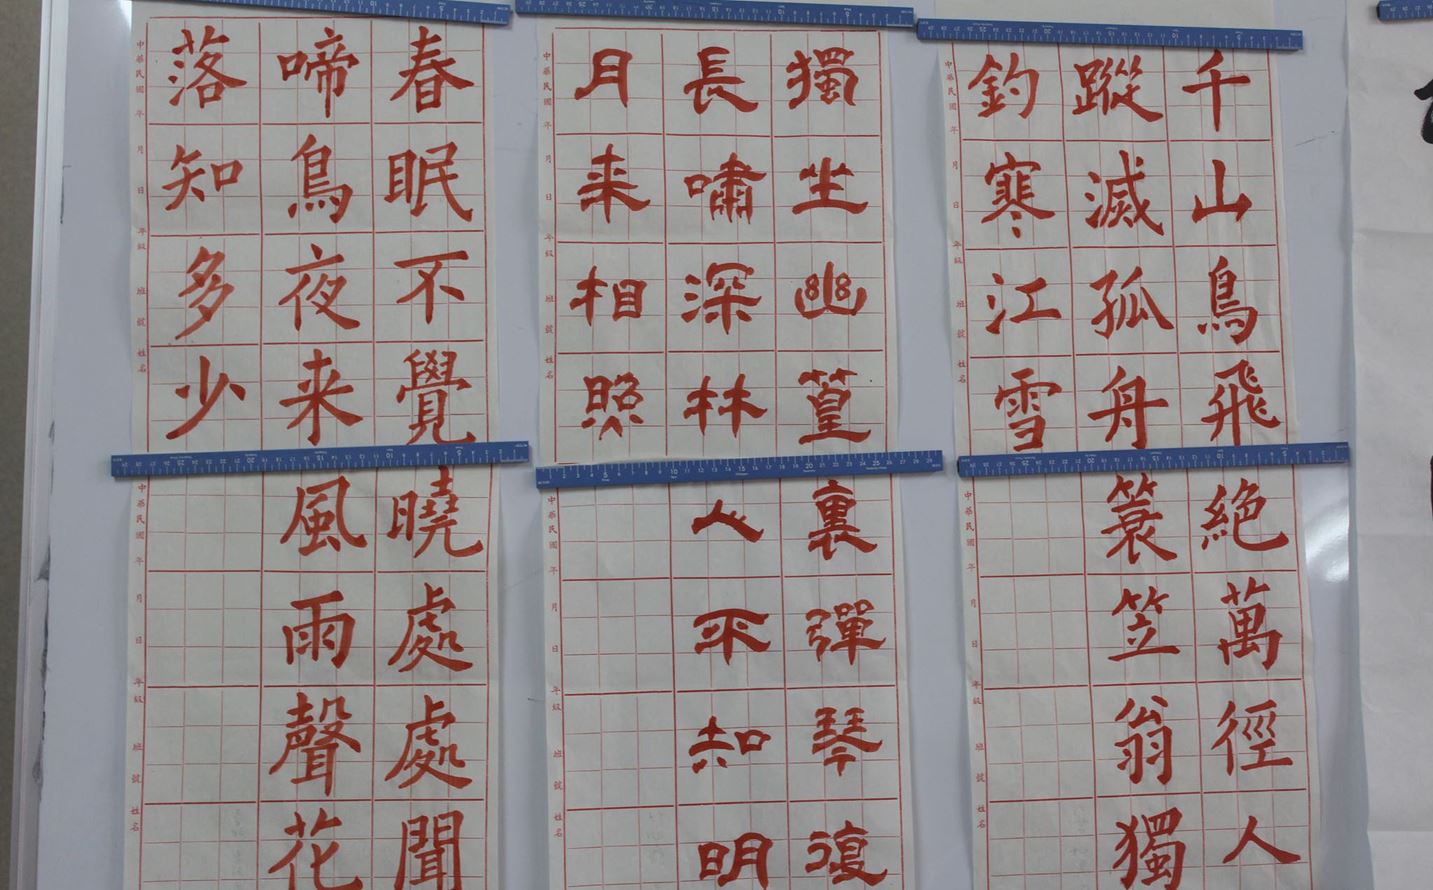 千山鳥飛絕萬徑人
蹤滅孤舟簑笠翁獨
釣寒江雪
中華民國 年 月 日 年級 班 號 姓名
中華民國 年 月 日 年級 班 號 姓名
獨坐幽篁裏彈琴復
長嘯深林人不知明
月来相照
中華民國 年 月 日 年級 班 號 姓名
中華民國 年 月 日 年級 班 號 姓名
春眠不覺曉處處聞
啼鳥夜来風雨聲花
落知多少
中華民國 年 月 日 年級 班 號 姓名
中華民國 年 月 日 年級 班 號 姓名